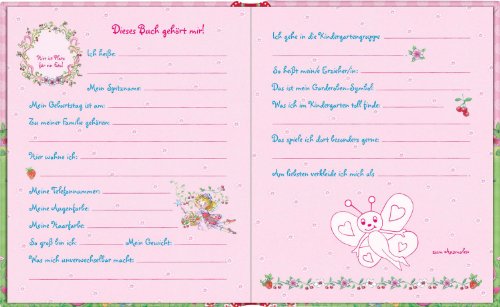 Dieses Buch gehört mir!
Hier ist Platz
für ein Foto!
Ich heiße:
Mein Spitzname:
Mein Geburtstag ist am:
Zu meiner Familie gehören:
Hier wohne ich:
Meine Telefonnummer:
Meine Augenfarbe:
Meine Haarfarbe:
So groß bin ich: Mein Gewicht:
Was mich unverwechselbar macht:
Ich gehe in die Kindergartengruppe
So heißt mein/e Erzieher/in:
Das ist mein Garderoben-Symbol:
Was ich im Kindergarten toll finde:
Das spiele ich dort besonders gerne:
Am liebsten verkleide ich mich als
zum Ausmalen